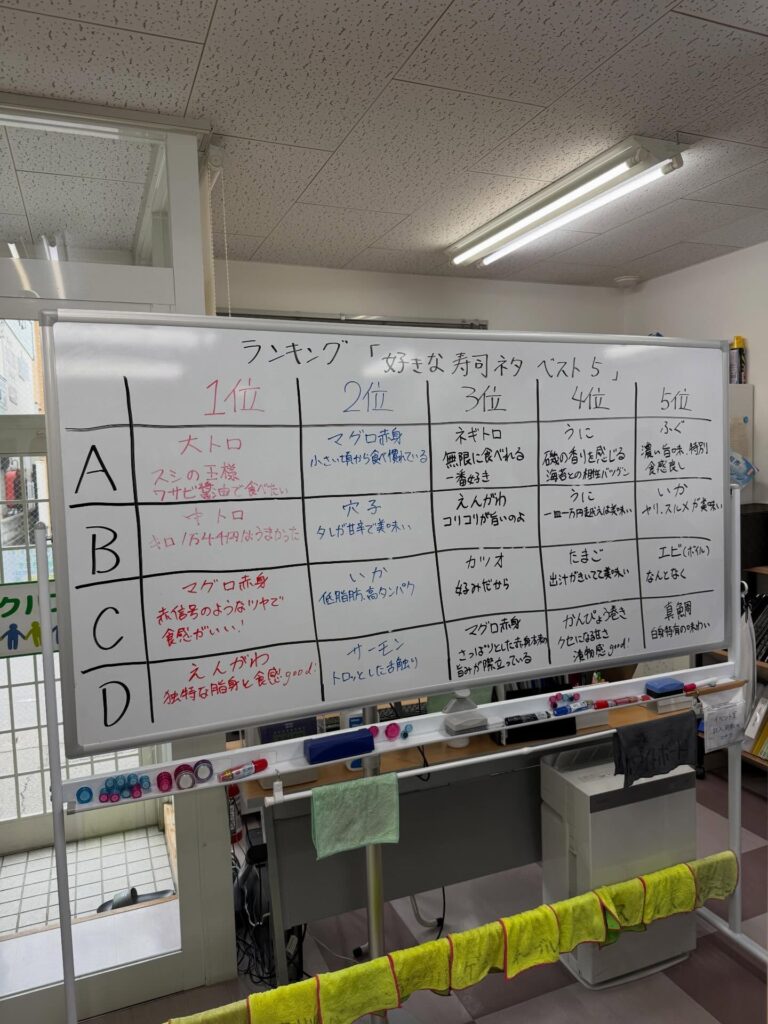 ランキング 「好きな寿司ネタ ベスト5」
1位 2位 3位 4位 5位
A
大トロ
スシの王様
ワサビ醤油で食べたい
マグロ赤身
小さい頃から食べ慣れている
ネギトロ
無限に食べれる
一番好き
うに
磯の香りを感じる
海苔との相性バツグン
ふぐ
濃い旨味、特別
食感良し
B
トロ
キロ1万44円なうまかった
穴子
タレが甘辛で美味い
えんがわ
コリコリが旨いのよ
うに
一皿一万円越えは美味い
いか
ヤリ、スルメが美味い
C
マグロ赤身
赤信号のようなツヤで
食感がいい!
いか
低脂肪、高タンパク
カツオ
好みだから
たまご
出汁がきいてて美味い
エビ(ボイル)
なんとなく
D
えんがわ
独特な脂身と食感good!
サーモン
トロッとした舌触り
マグロ赤身
さっぱりとした赤身
旨みが際立っている
かんぴょう巻き
クセになる甘さ
漬物感good!
真鯛
白身特有の味わい
クハ
ホワイトボード
イベント室